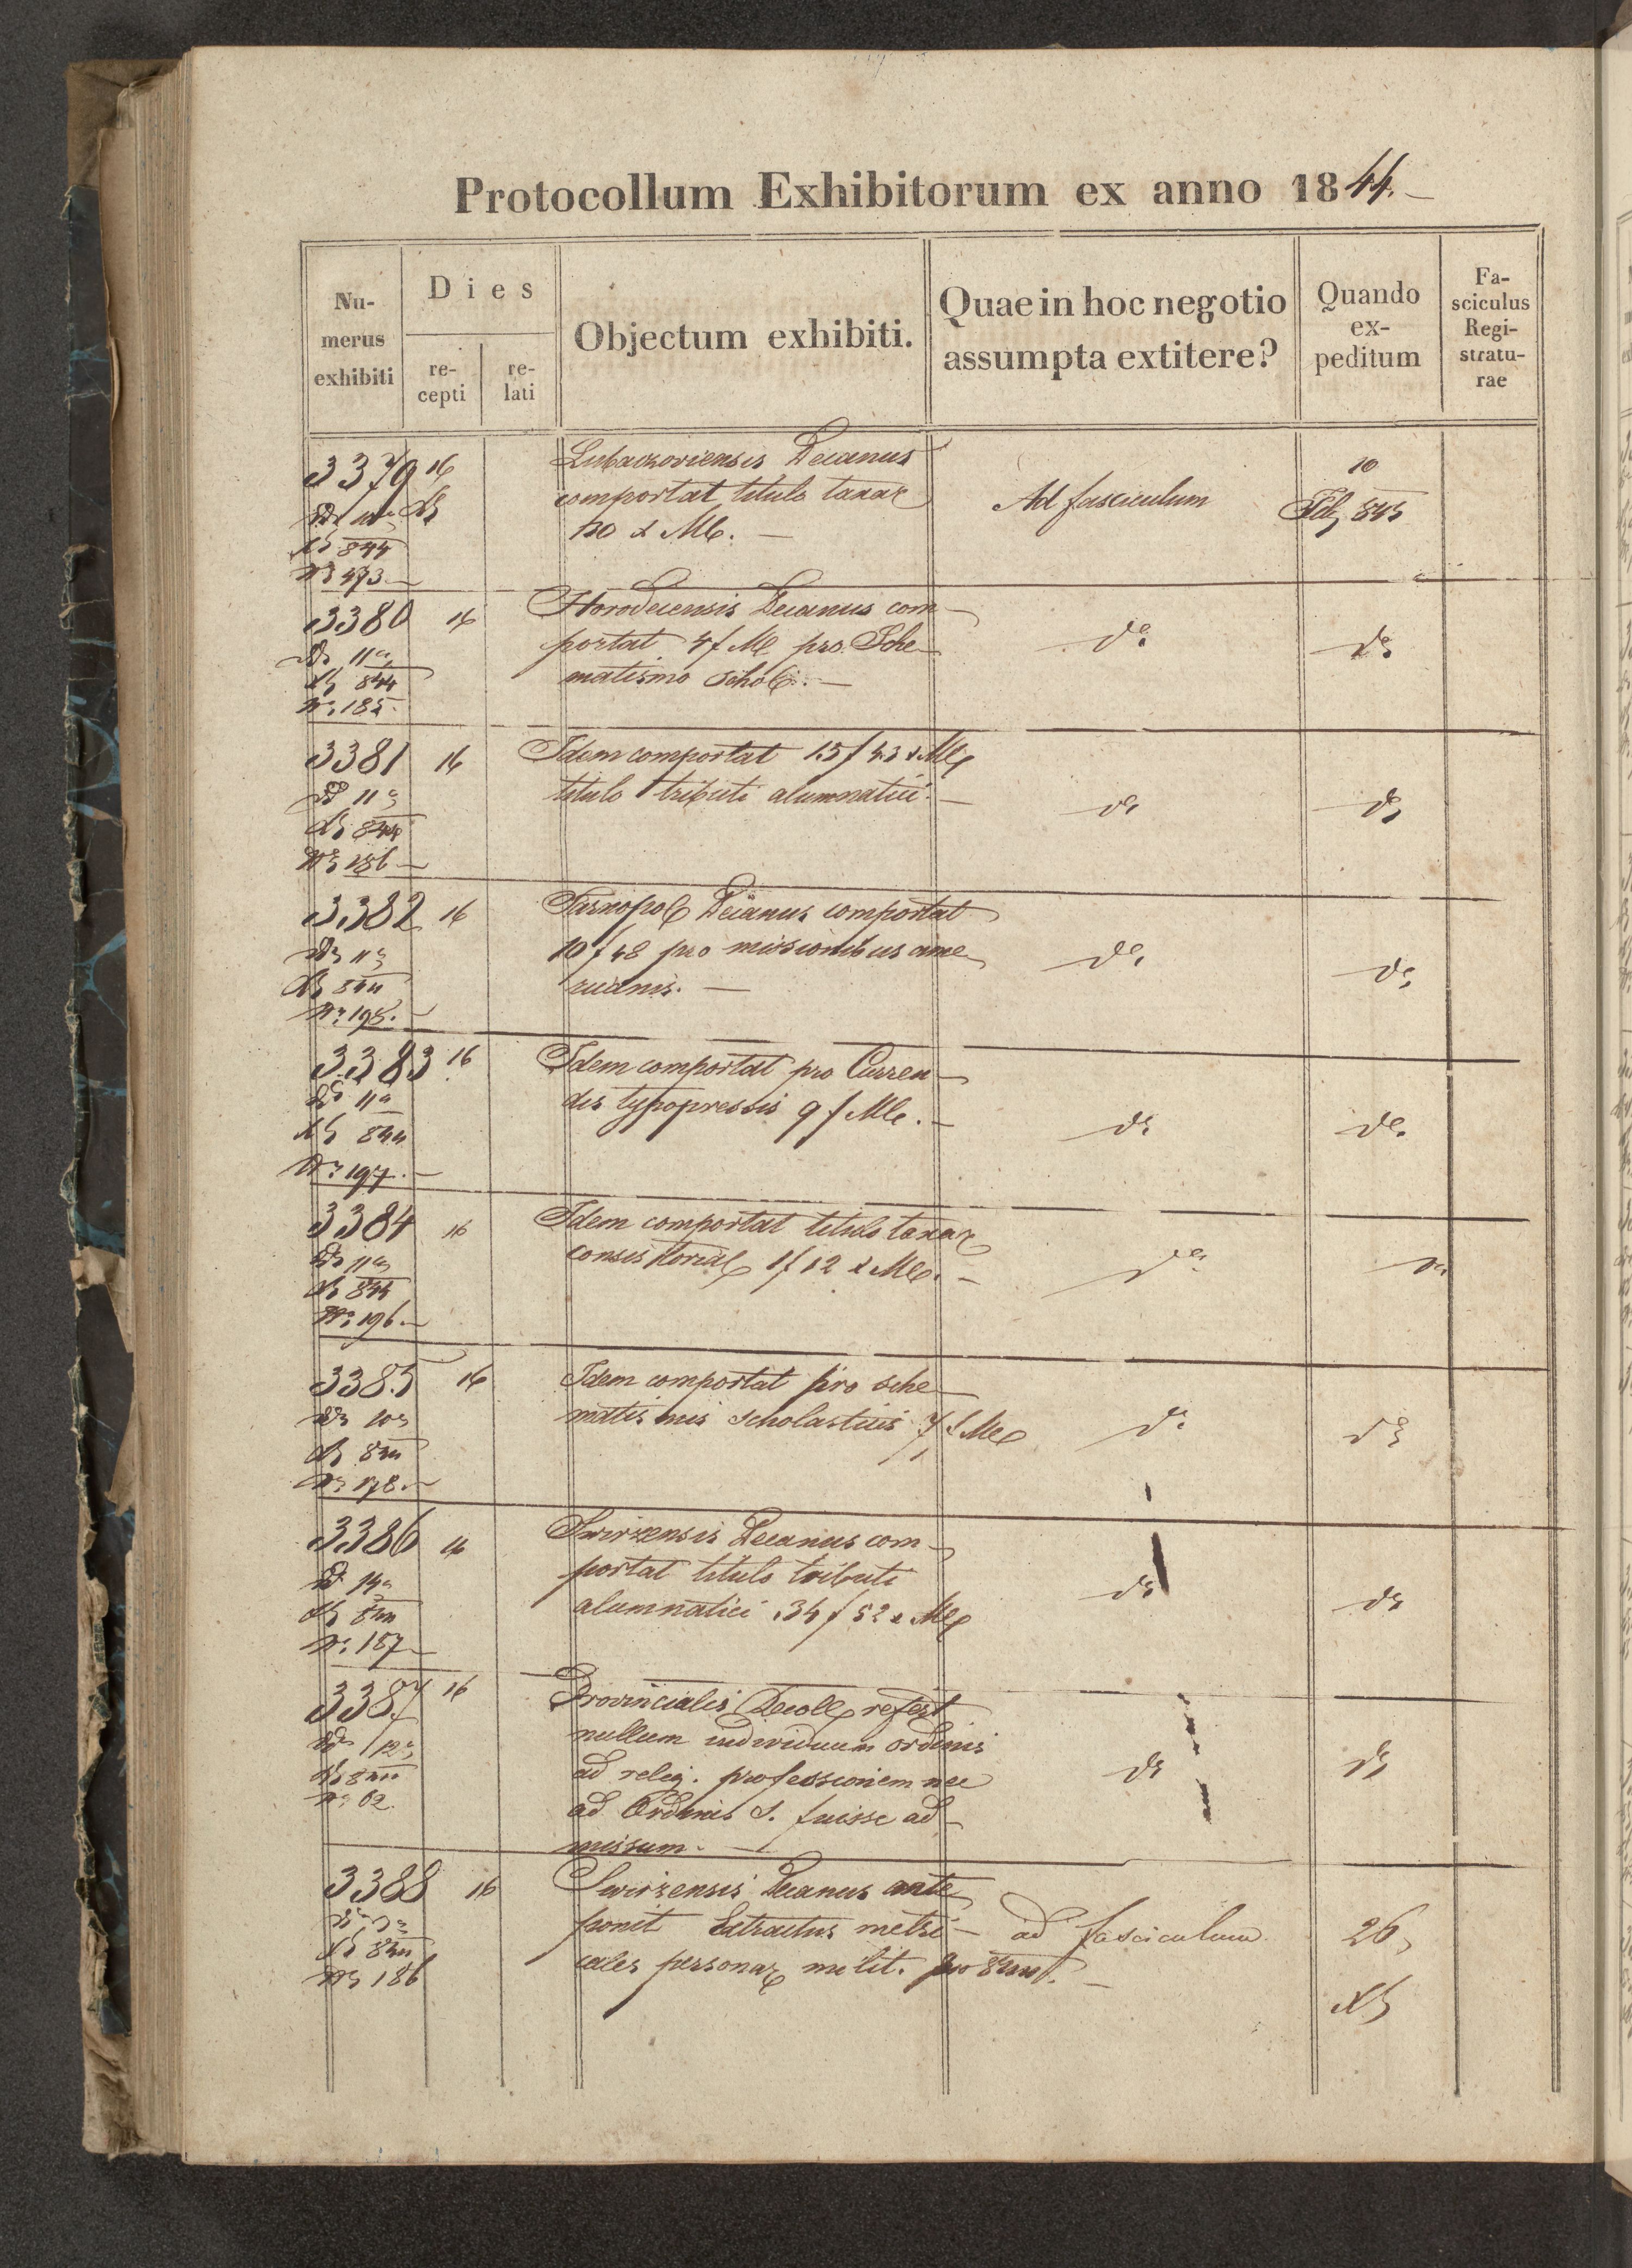 Protocollum Exhibitorum ex anno 1844.
Nu-
merus
exhibiti
Dies
re-
cepti
re-
lati
Objectum exhibiti.
Quae in hoc negotio
assumpta extitere?
Quando
ex-
peditum
Fa-
sciculus
Regi-
stratu-
rae
3379 16
844
473
Lubaczoviensis Decanus
comportat titulo taxar
120 x
Ad fasciculum
10
845
3380 16
11
844
185
Horodecensis Decanus com-
portat 4 f pro Sche-
matismo Schol.
do
do
3381 16
11
844
186
Idem comportat 15 f 43 x
titulo tributi alumnatici.
do
do
3382 16
11
844
195.
Tarnopol Decanus comportat
10 f 48 pro missionibus ame-
ricanis.
do
do
3383 16
11
844
197.
Idem comportat pro Curren-
dis typopressis 9 f
do
do
3384 16
11
844
196
Idem comportat titulo taxar
consistorial 1 f 12 x
do
do
3385 16
10
844
178
Idem comportat pro sche-
matismis scholasticis 7 f
do
do
3386 16
14
844
157
Swirzensis Decanus com-
portat titulo tributi
alumnatici 34 f 52 x
do
do
3387 16
12
844
62.
Provincialis refert
nullum individuum ordinis
ad relig. professionem nec
ad Ordines S. fuisse ad-
missum.
do
do
3388 16
844
186
Swirzensis Decanus ante-
ponit Extractus metri-
cales personar milit. pro
ad fasciculum
26